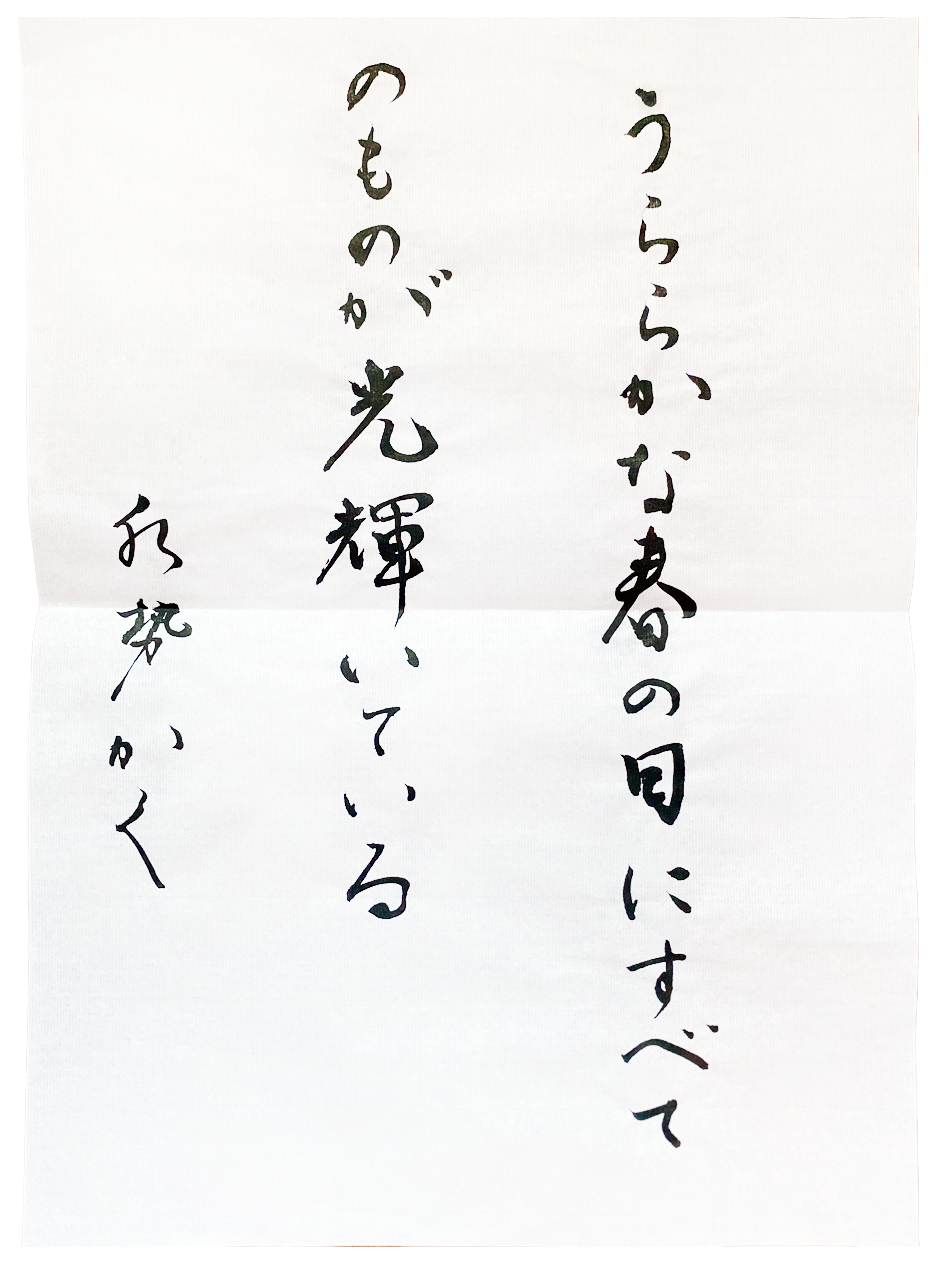 うららかな春の日にすべて
のものが光輝いている
勢かく